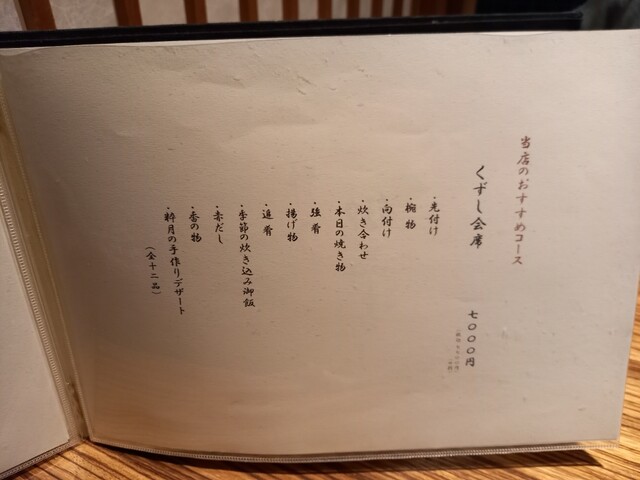 当店のおすすめコース
くずし会席 七〇〇〇円
・先付け
・椀物
・向付け
・炊き合わせ
・本日の焼き物
・強肴
・揚げ物
・追肴
・季節の炊き込み御飯
・赤だし
・香の物
・粋月の手作りデザート
(全十二品)